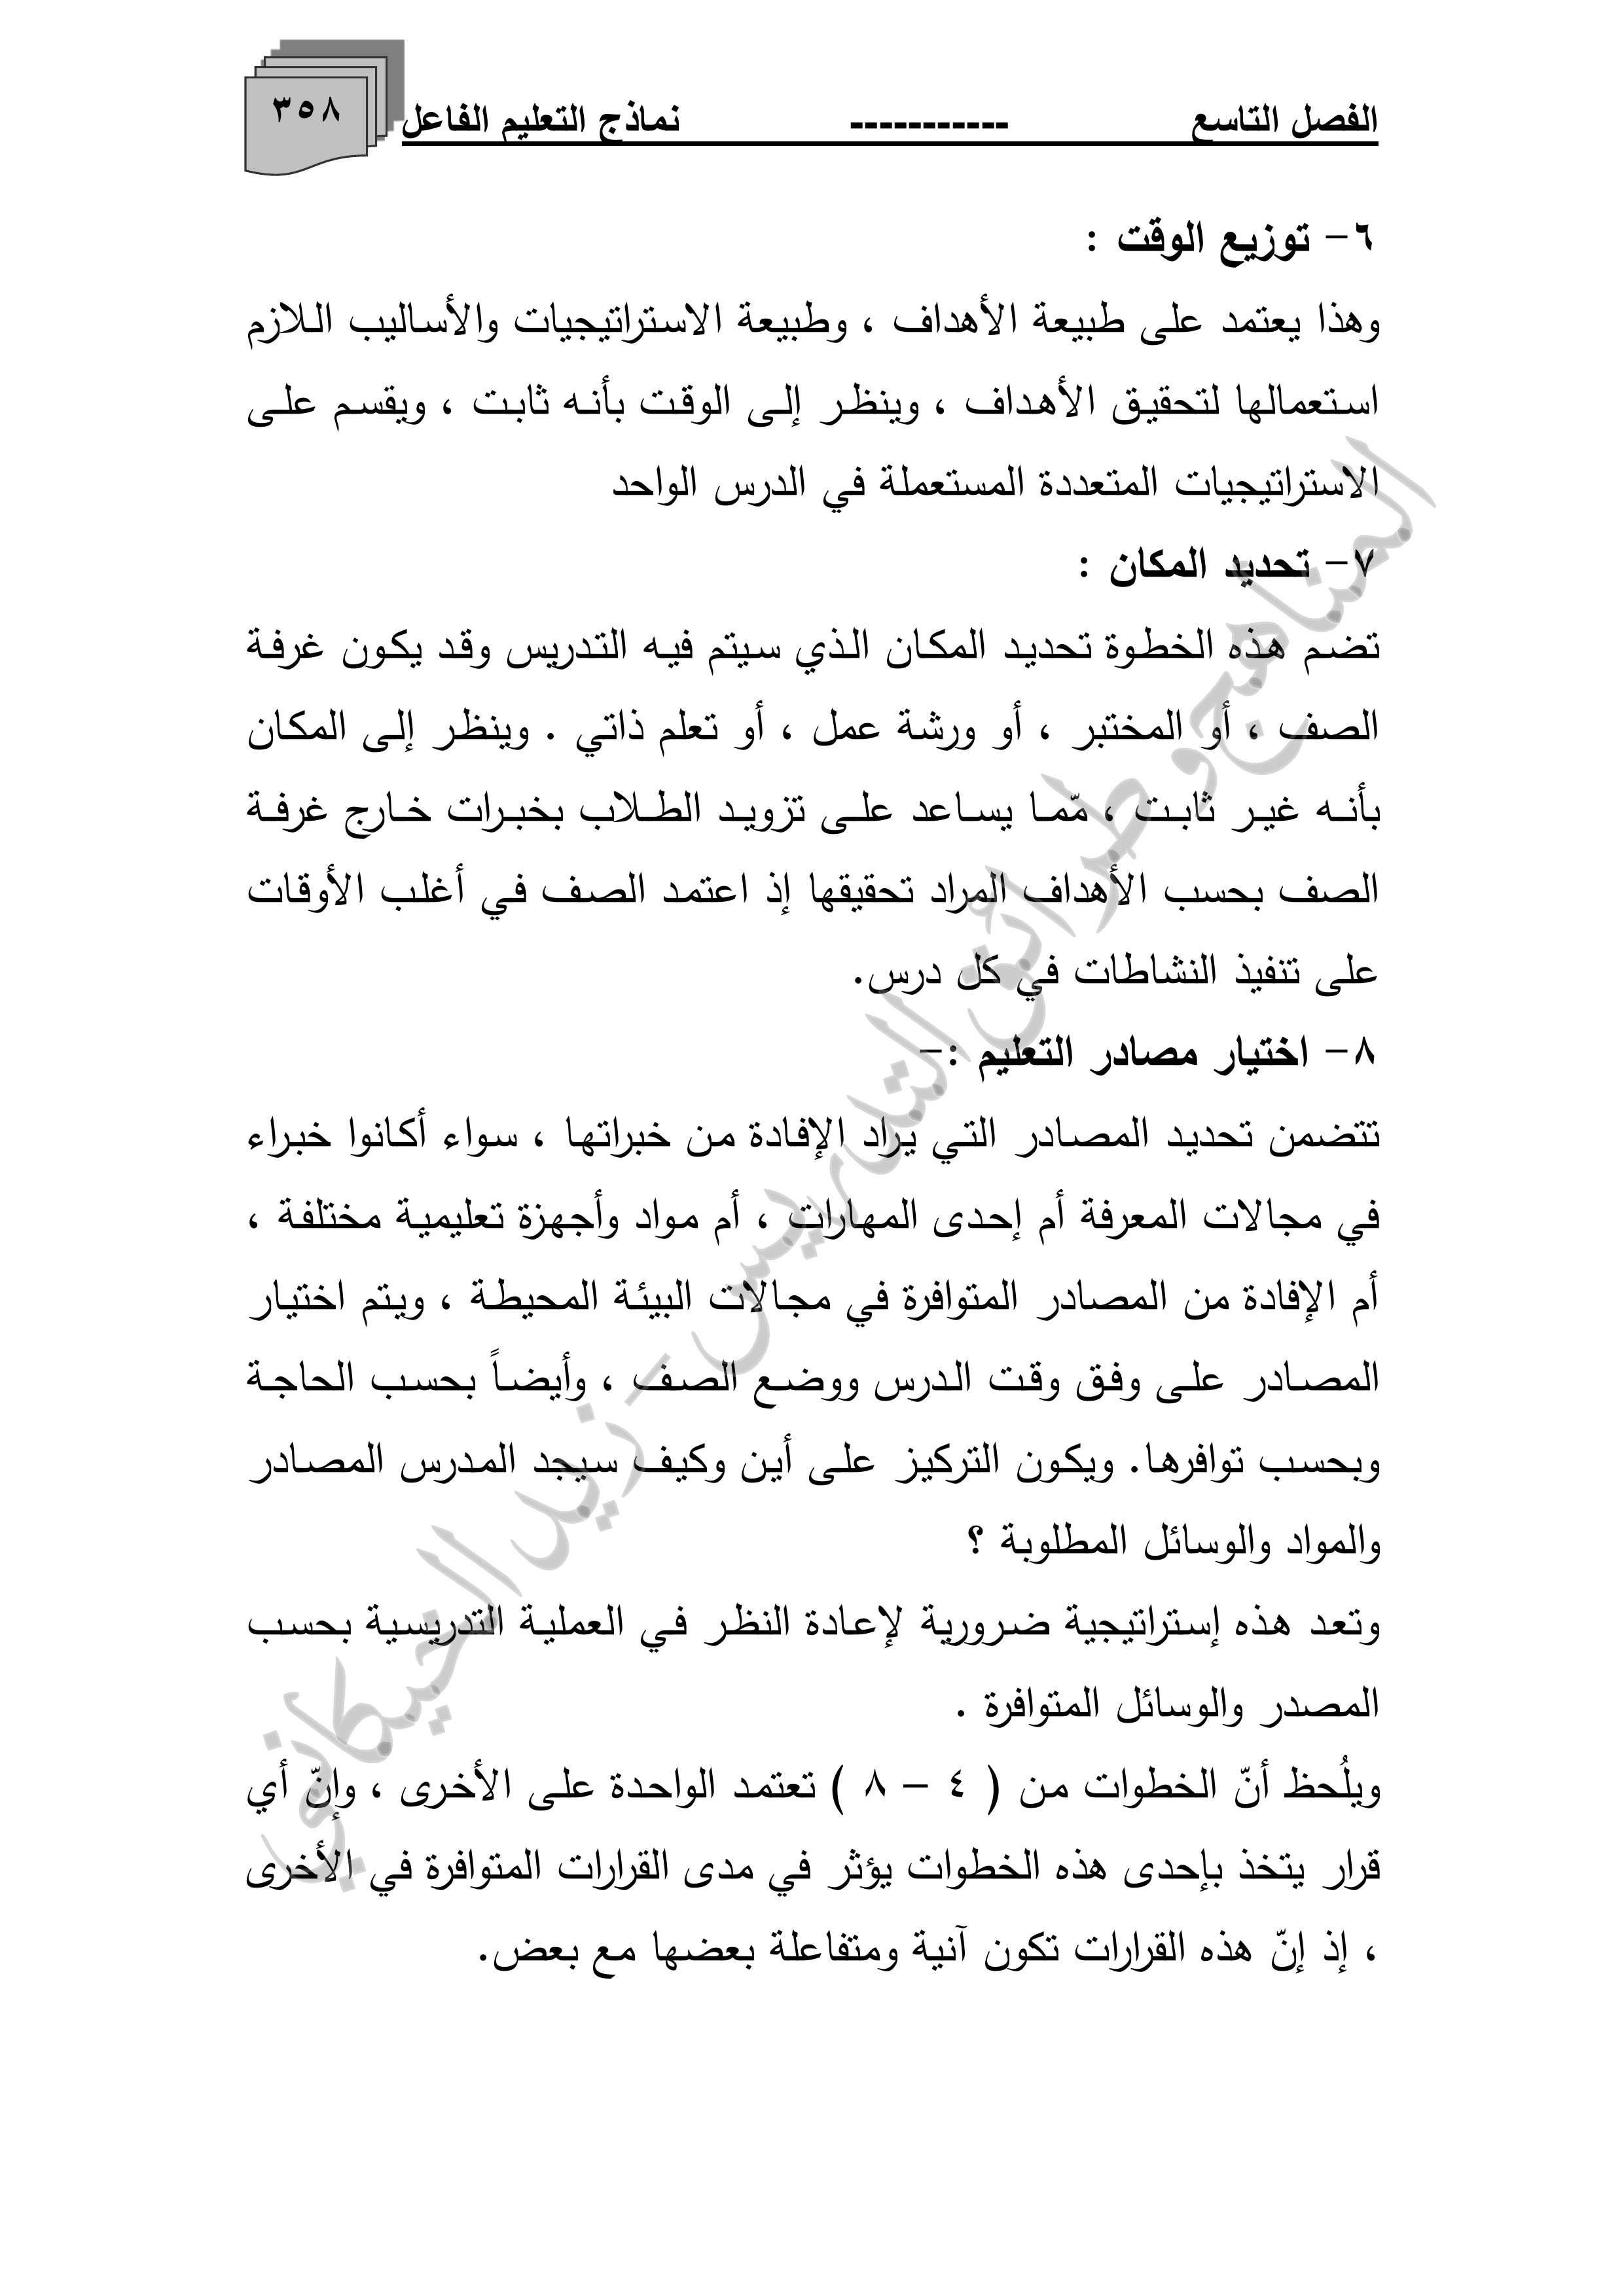 الفصل التاسع ----------- نماذج التعليم الفاعل ٣٥٨
٦- توزيع الوقت :
وهذا يعتمد على طبيعة الأهداف ، وطبيعة الاستراتيجيات والأساليب اللازم
استعمالها لتحقيق الأهداف ، وينظر إلى الوقت بأنه ثابت ، ويقسم على
الاستراتيجيات المتعددة المستعملة في الدرس الواحد
٧- تحديد المكان :
تضم هذه الخطوة تحديد المكان الذي سيتم فيه التدريس وقد يكون غرفة
الصف ، أو المختبر ، أو ورشة عمل ، أو تعلم ذاتي . وينظر إلى المكان
بأنه غير ثابت ، مّما يساعد على تزويد الطلاب بخبرات خارج غرفة
الصف بحسب الأهداف المراد تحقيقها إذ اعتمد الصف في أغلب الأوقات
على تنفيذ النشاطات في كل درس.
٨- اختيار مصادر التعليم :-
تتضمن تحديد المصادر التي يراد الإفادة من خبراتها ، سواء أكانوا خبراء
في مجالات المعرفة أم إحدى المهارات ، أم مواد وأجهزة تعليمية مختلفة ،
أم الإفادة من المصادر المتوافرة في مجالات البيئة المحيطة ، ويتم اختيار
المصادر على وفق وقت الدرس ووضع الصف ، وأيضاً بحسب الحاجة
وبحسب توافرها. ويكون التركيز على أين وكيف سيجد المدرس المصادر
والمواد والوسائل المطلوبة ؟
وتعد هذه إستراتيجية ضرورية لإعادة النظر في العملية التدريسية بحسب
المصدر والوسائل المتوافرة .
ويلُحظ أنّ الخطوات من ( ٤ – ٨ ) تعتمد الواحدة على الأخرى ، وإنّ أي
قرار يتخذ بإحدى هذه الخطوات يؤثر في مدى القرارات المتوافرة في الأخرى
، إذ إنّ هذه القرارات تكون آنية ومتفاعلة بعضها مع بعض.
المناهج وطرائق التدريس - زيد الخيكاني